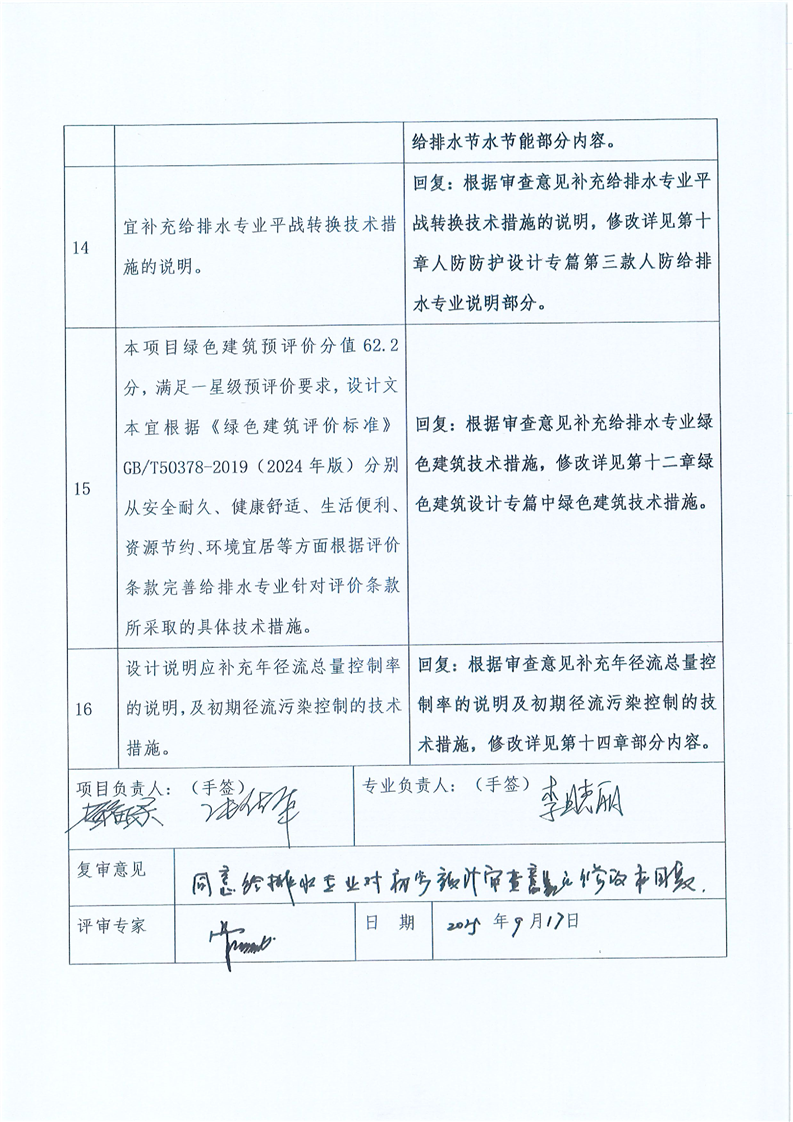 给排水节水节能部分内容。
14
宜补充给排水专业平战转换技术措
施的说明。
回复：根据审查意见补充给排水专业平
战转换技术措施的说明，修改详见第十
章人防防护设计专篇第三款人防给排
水专业说明部分。
15
本项目绿色建筑预评价分值 62.2
分，满足一星级预评价要求，设计文
本宜根据《绿色建筑评价标准》
GB/T50378-2019（2024 年版）分别
从安全耐久、健康舒适、生活便利、
资源节约、环境宜居等方面根据评价
条款完善给排水专业针对评价条款
所采取的具体技术措施。
回复：根据审查意见补充给排水专业绿
色建筑技术措施，修改详见第十二章绿
色建筑设计专篇中绿色建筑技术措施。
16
设计说明应补充年径流总量控制率
的说明,及初期径流污染控制的技术
措施。
回复：根据审查意见补充年径流总量控
制率的说明及初期径流污染控制的技
术措施，修改详见第十四章部分内容。
项目负责人：（手签）
专业负责人：（手签）
复审意见
同意给排水专业对初步设计审查意见修改和回复.
评审专家
日 期
2025 年 9 月 17 日